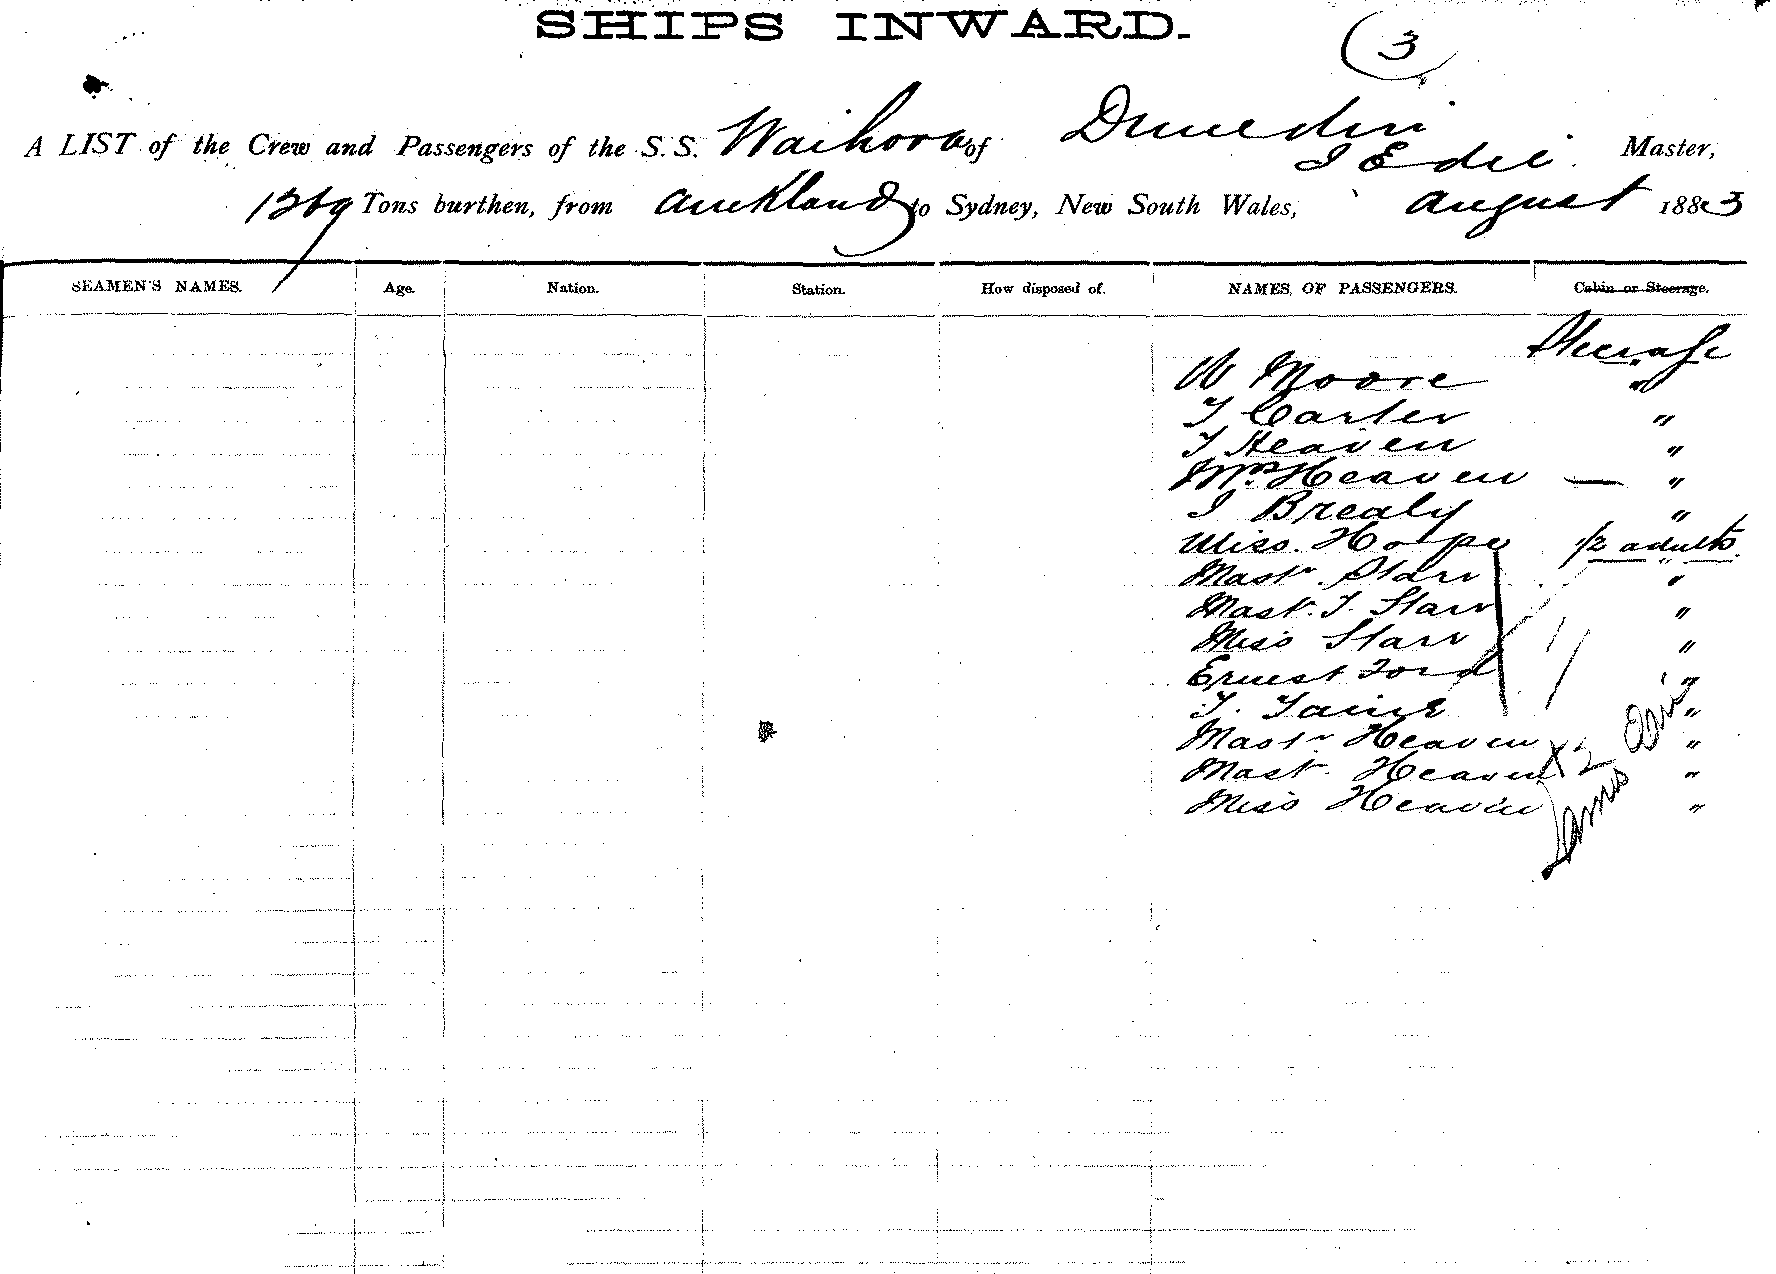 SHIPS INWARD.
(3)
A LIST of the Crew and Passengers of the S.S. Waihora of Dunedin
J Edie Master,
1269 Tons burthen, from Auckland to Sydney, New South Wales, August 1883
SEAMEN'S NAMES. Age. Nation. Station. How disposed of. NAMES OF PASSENGERS. Cabin or Steerage.
Steerage
W Moore "
T Carter "
T Heaven "
Mrs Heaven — "
J Brealy "
Miss Hope 1/2 adults
Mastr Starr "
Mast. T. Starr "
Miss Starr "
Ernest Ford "
T. "
Mastr Heaven "
Mast. Heaven "
Miss Heaven "